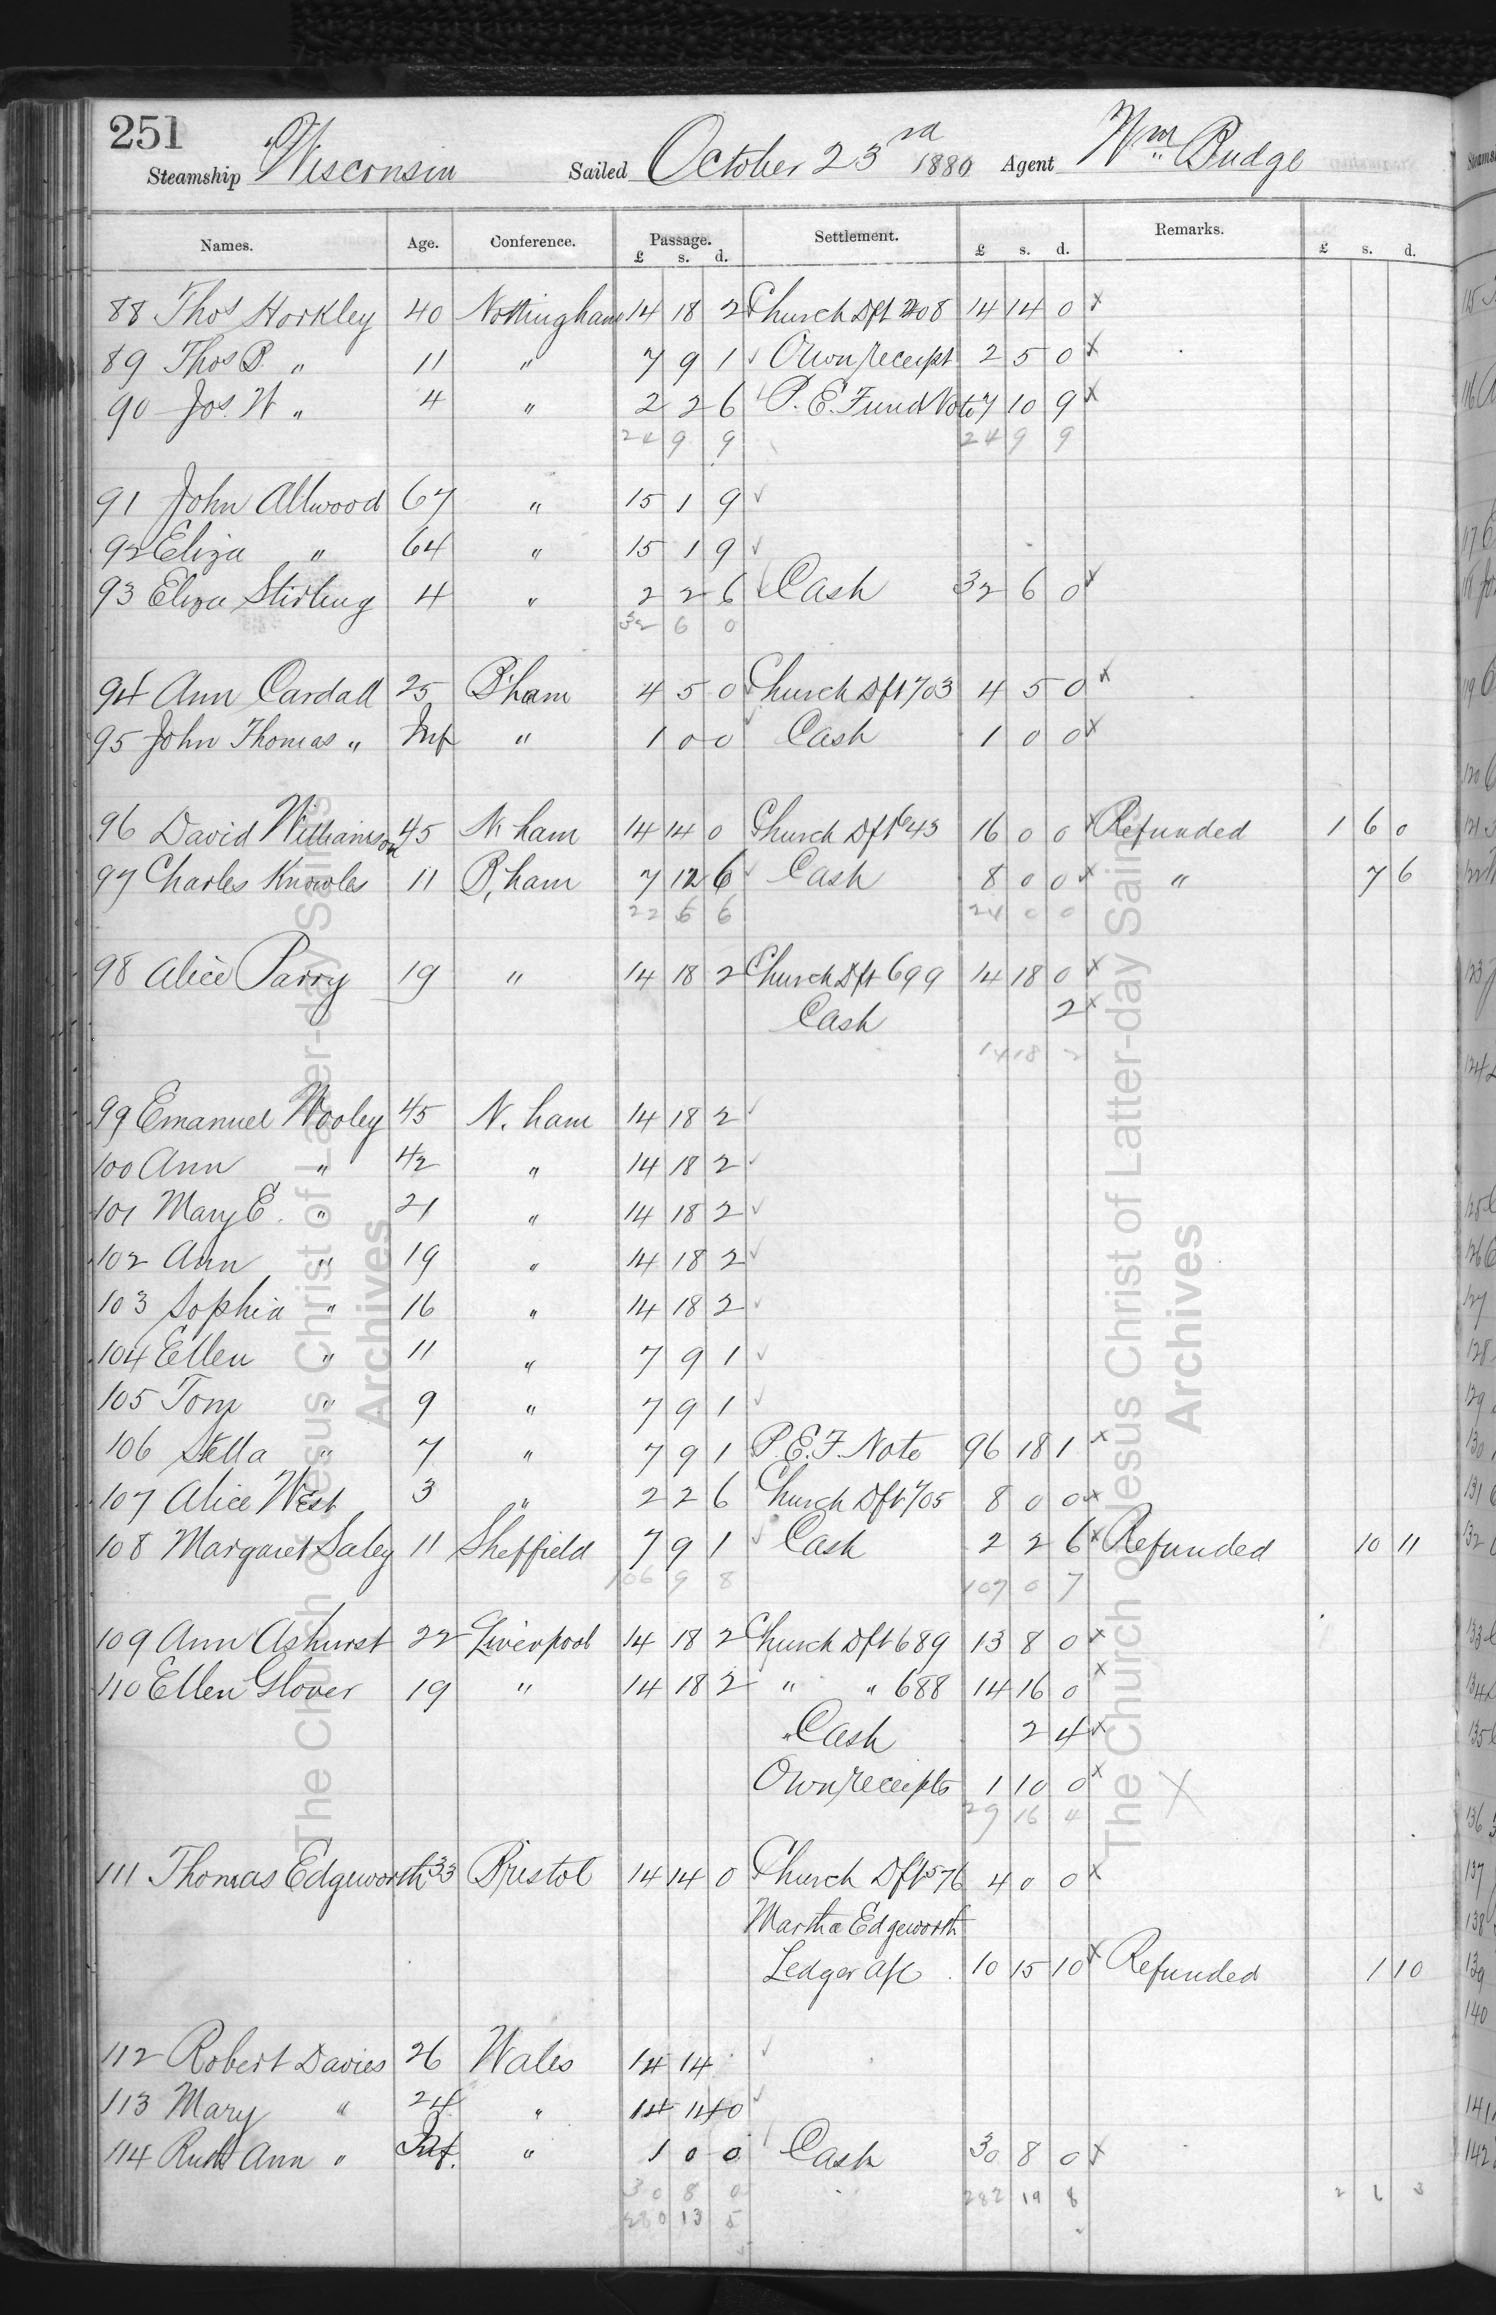 251
Steamship Wisconsin Sailed October 23rd 1880 Agent Wm Budge
Names. Age. Conference. Passage. £ s. d. Settlement. £ s. d. Remarks. £ s. d.
88 Thos Horkley 40 Nottingham 14 18 2 Church Dft 708 14 14 0 x
89 Thos B. " 11 " 7 9 1 ✓ Own receipt 2 5 0 x
90 Jos. W " 4 " 2 2 6 ✓ P. E. Fund Note 7 10 9 x
24 9 9 24 9 9
91 John Allwood 67 " 15 1 9 ✓
92 Eliza " 64 " 15 1 9 ✓
93 Eliza Stirling 4 " 2 2 6 ✓ Cash 32 6 0 x
32 6 0
94 Ann Cardall 25 B'ham 4 5 0 ✓ Church Dft 703 4 5 0 x
95 John Thomas " Inf " 1 0 0 ✓ Cash 1 0 0 x
96 David Williamson 45 N. ham 14 14 0 Church Dft 643 16 0 0 x Refunded 1 6 0
97 Charles Knowles 11 B,ham 7 12 6 ✓ Cash 8 0 0 x " 7 6
22 6 6 24 0 0
98 Alice Parry 19 " 14 18 2 Church Dft 699 14 18 0 x
Cash 2 x
14 18 2
99 Emanuel Wooley 45 N. ham 14 18 2 ✓
100 Ann " 42 " 14 18 2 ✓
101 Mary E. " 21 " 14 18 2 ✓
102 Ann " 19 " 14 18 2 ✓
103 Sophia " 16 " 14 18 2 ✓
104 Ellen " 11 " 7 9 1 ✓
105 Tom " 9 " 7 9 1 ✓
106 Stella " 7 " 7 9 1 P. E. F. Note 96 18 1 x
107 Alice West 3 " 2 2 6 Church Dft 705 8 0 0 x
108 Margaret Saley 11 Sheffield 7 9 1 ✓ Cash 2 2 6 x Refunded 10 11
106 9 8 107 0 7
109 Ann Ashurst 22 Liverpool 14 18 2 Church Dft 689 13 8 0 x
110 Ellen Glover 19 " 14 18 2 " " 688 14 16 0 x
Cash 2 4 x
Own receipts 1 10 0 x
29 16 4
111 Thomas Edgeworth 33 Bristol 14 14 0 Church Dft 576 4 0 0 x
Martha Edgeworth
Ledger a/c 10 15 10 x Refunded 1 10
112 Robert Davies 26 Wales 14 14 ✓
113 Mary " 24 " 14 14 0 ✓
114 Ruth Ann " Inf. " 1 0 0 Cash 30 8 0 x
30 8 0 282 19 8 2 6 3
280 13 5
The Church of Jesus Christ of Latter-day Saints
Archives
The Church of Jesus Christ of Latter-day Saints
Archives